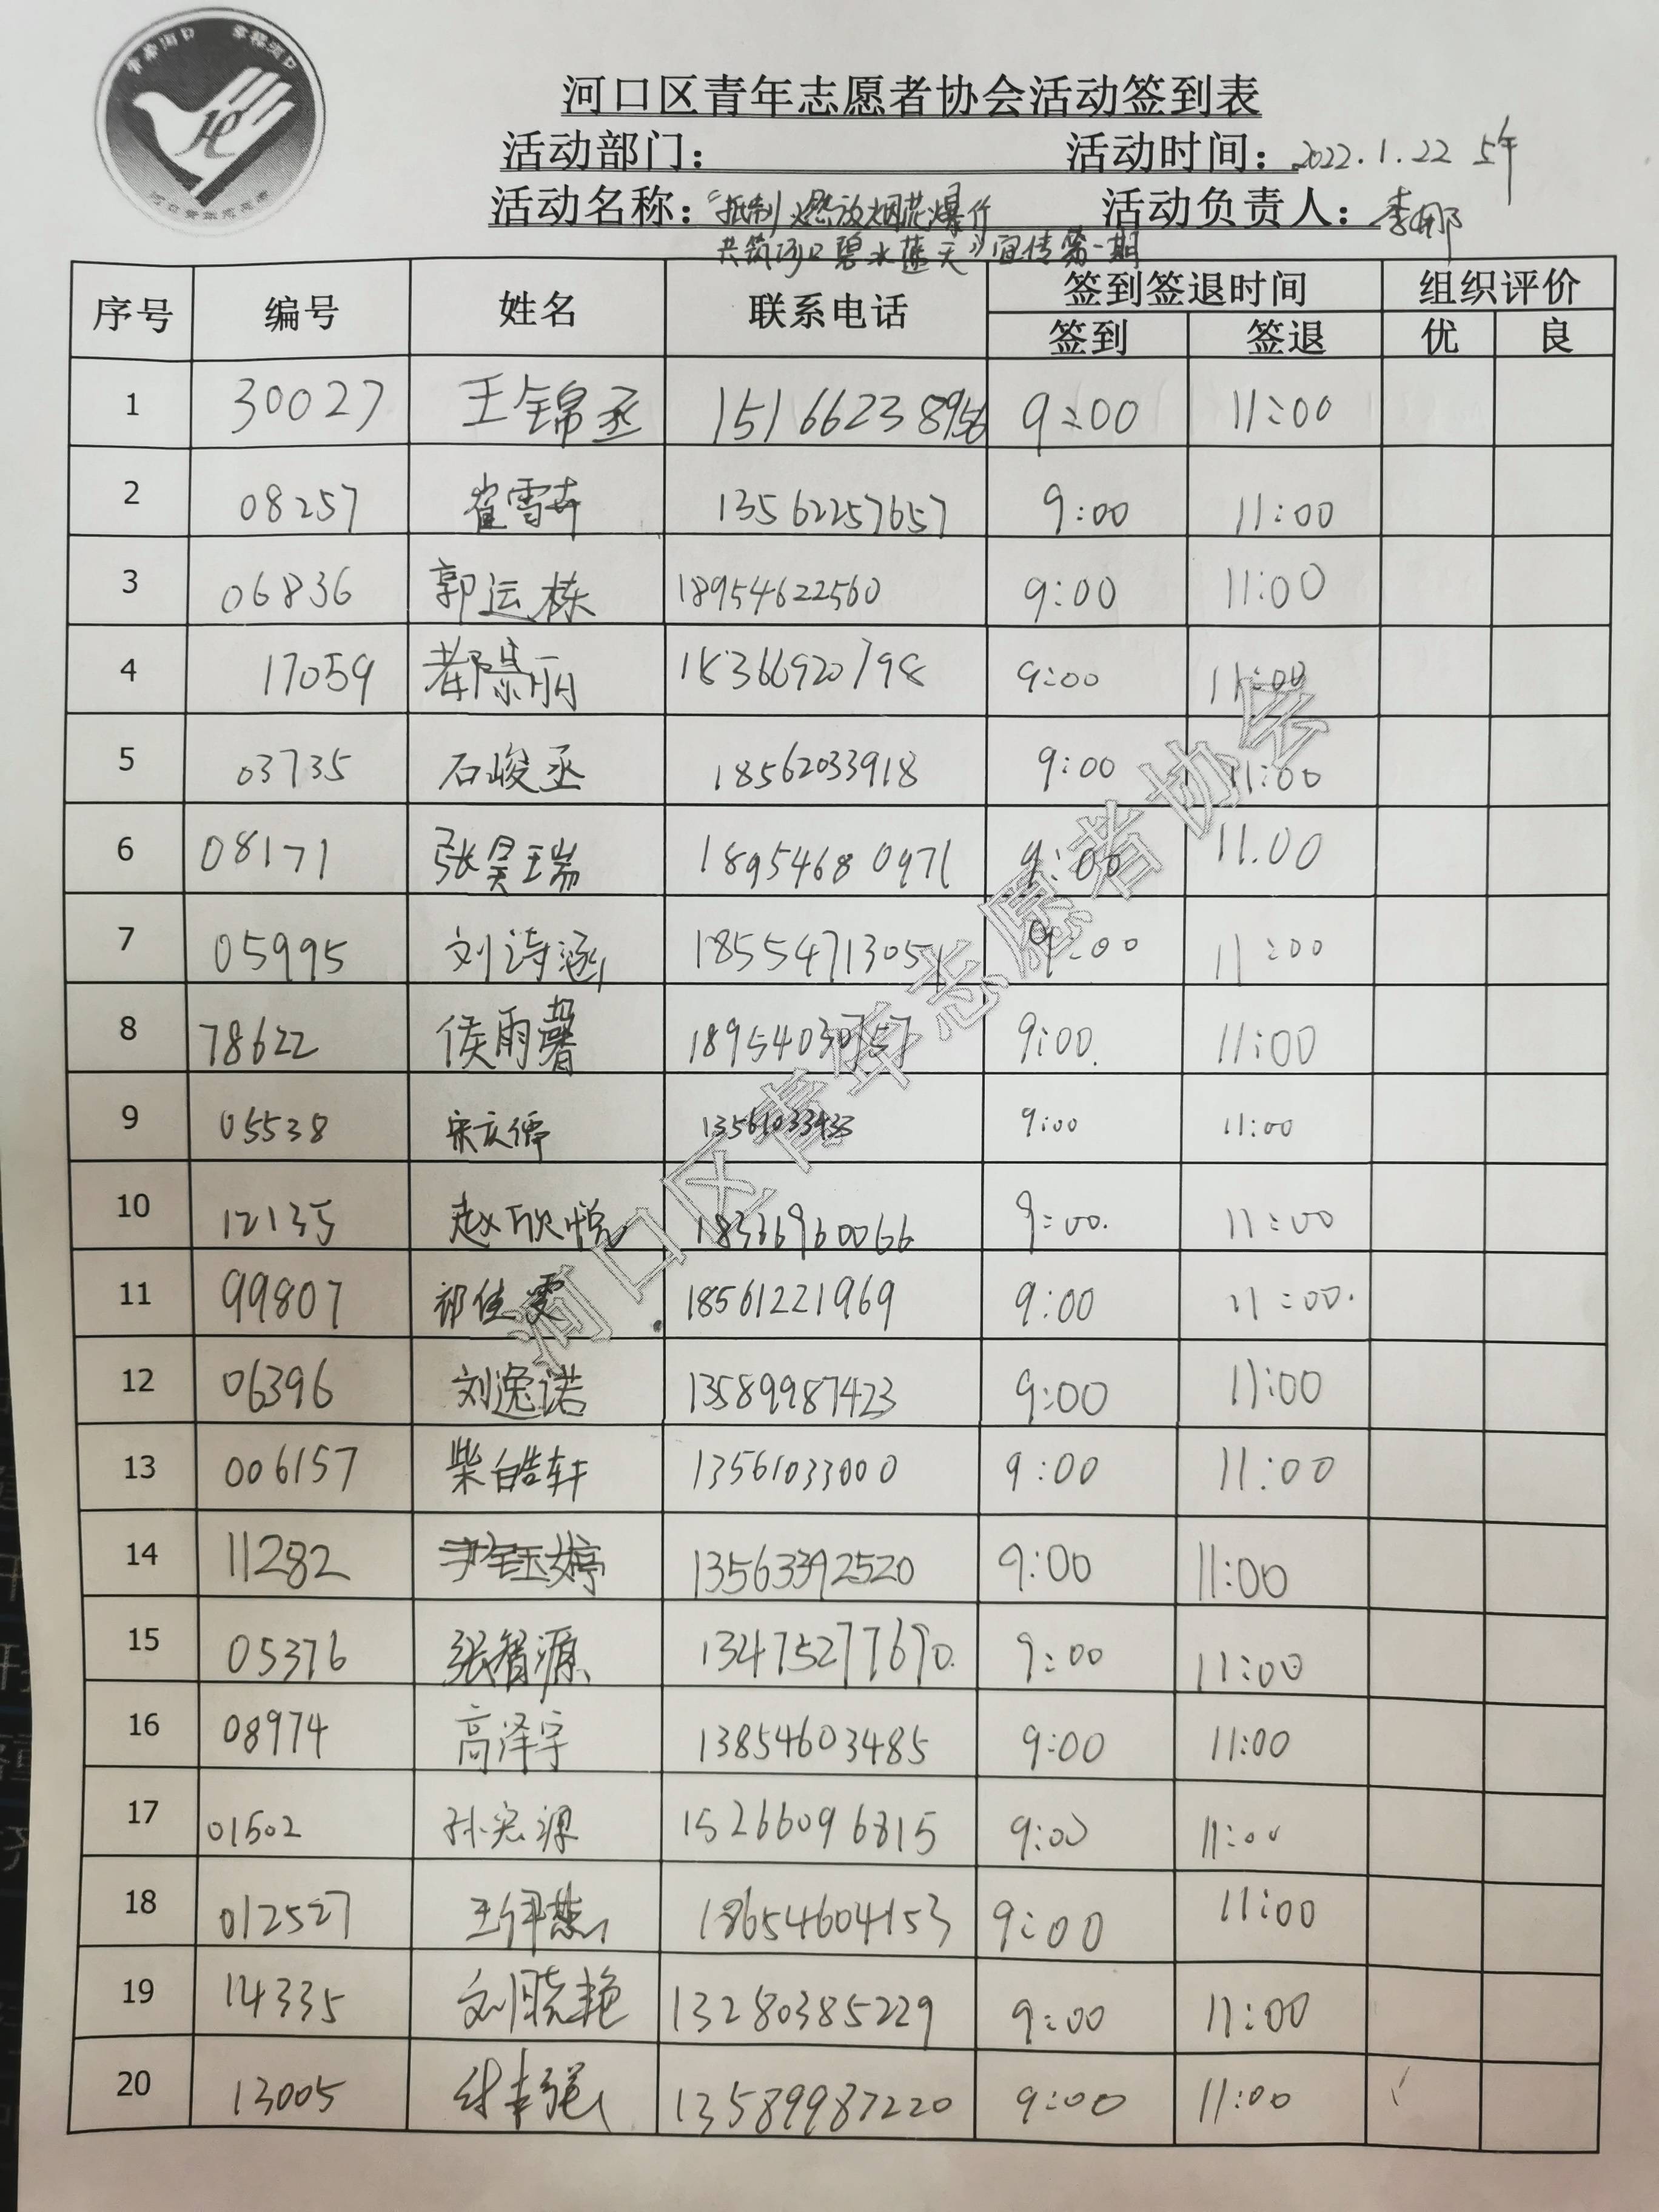 青春河口 幸福河口
河口青年志愿者
河口区青年志愿者协会活动签到表
活动部门： 活动时间：2022.1.22 上午
活动名称："抵制燃放烟花爆竹 活动负责人：李娜
共筑河口碧水蓝天"宣传第一期
序号 编号 姓名 联系电话 签到签退时间 组织评价
签到 签退 优 良
1 30027 王锦丞 15166238956 9:00 11:00
2 08257 崔雪卉 13562257657 9:00 11:00
3 06836 郭运栋 18954622560 9:00 11:00
4 17059 15366920798 9:00 11:00
5 03735 石峻丞 18562033918 9:00 11:00
6 08171 张昊瑞 18954680971 9:00 11.00
7 05995 刘诗涵 18554713051 9:00 11:00
8 78622 侯雨馨 18954030757 9:00. 11:00
9 05538 13561033433 9:00 11:00
10 12135 赵欣悦 18336960066 9:00. 11:00
11 99807 祁佳雯 18561221969 9:00 11:00.
12 06396 刘逸诺 13589987423 9:00 11:00
13 006157 柴皓轩 13561033000 9:00 11:00
14 11282 13563392520 9:00 11:00
15 05376 张智源 13475277690. 9:00 11:00
16 08974 高泽宇 13854603485 9:00 11:00
17 01502 孙宏源 15266096815 9:00 11:00
18 012527 王伊蕊 18654604153 9:00 11:00
19 14335 刘晓艳 13280385229 9:00 11:00
20 13005 13589987220 9:00 11:00
河口区青年志愿者协会